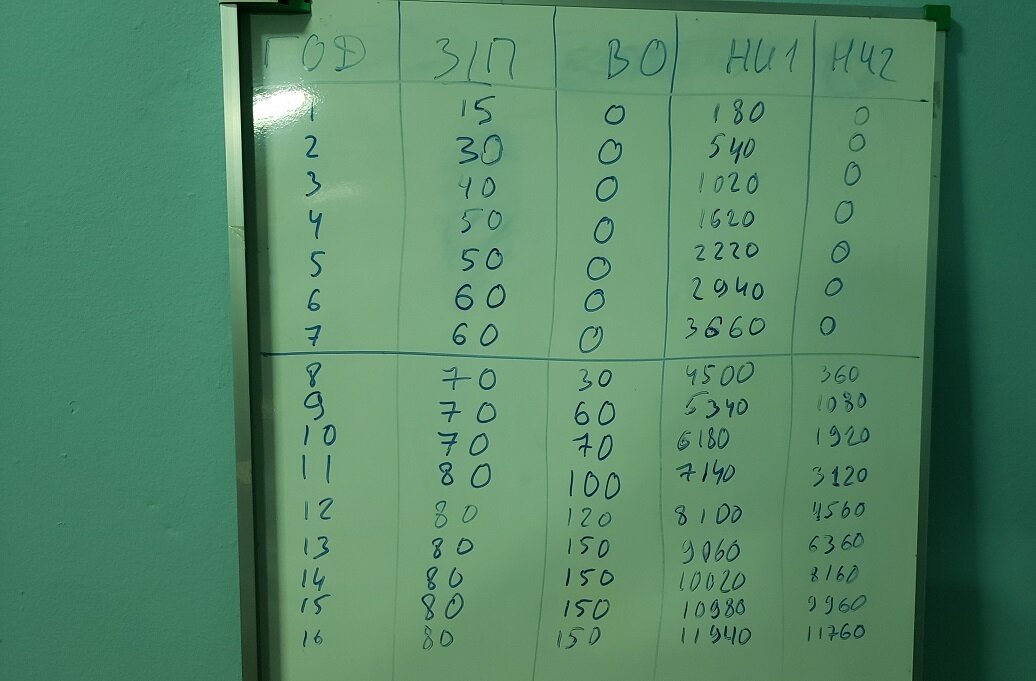 ГОД З/П ВО НИ1 НИ2
1 15 0 180 0
2 30 0 540 0
3 40 0 1020 0
4 50 0 1620 0
5 50 0 2220 0
6 60 0 2940 0
7 60 0 3660 0
8 70 30 4500 360
9 70 60 5340 1080
10 70 70 6180 1920
11 80 100 7140 3120
12 80 120 8100 4560
13 80 150 9060 6360
14 80 150 10020 8160
15 80 150 10980 9960
16 80 150 11940 11760